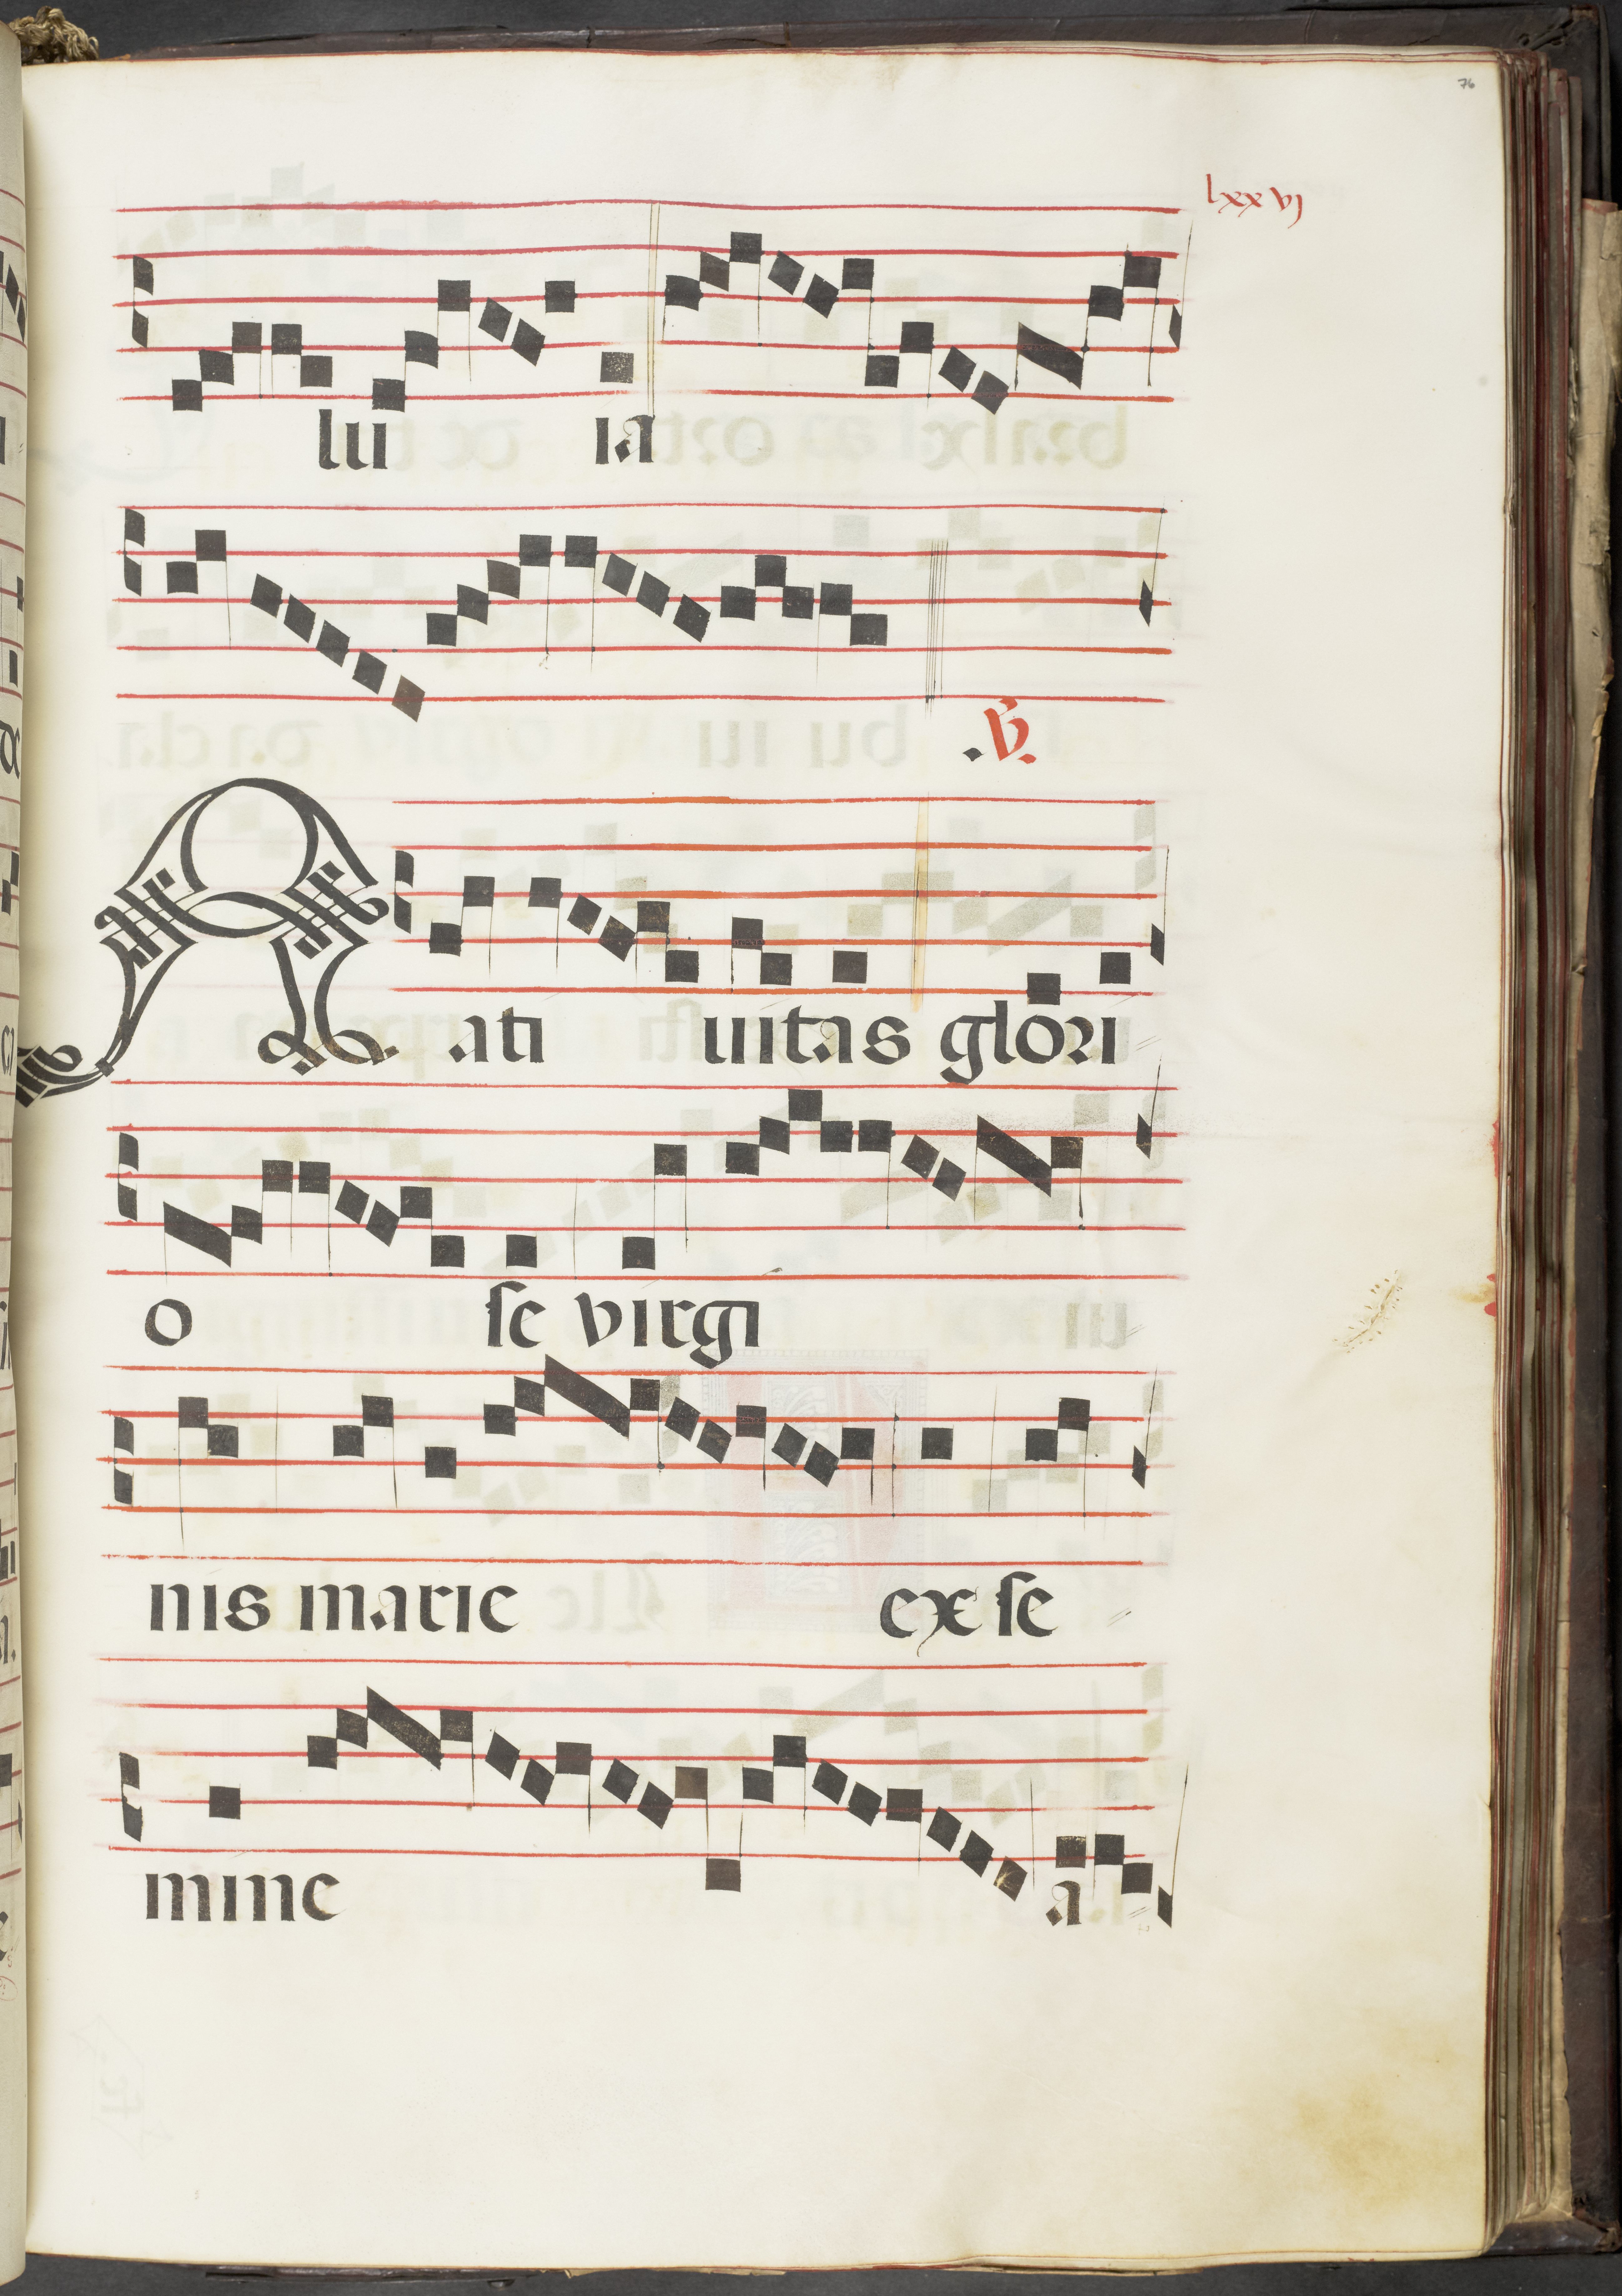 76
lxxvj
lu ia
.V.
Nati uitas glori
o se virgi
nis marie ex se
mine a